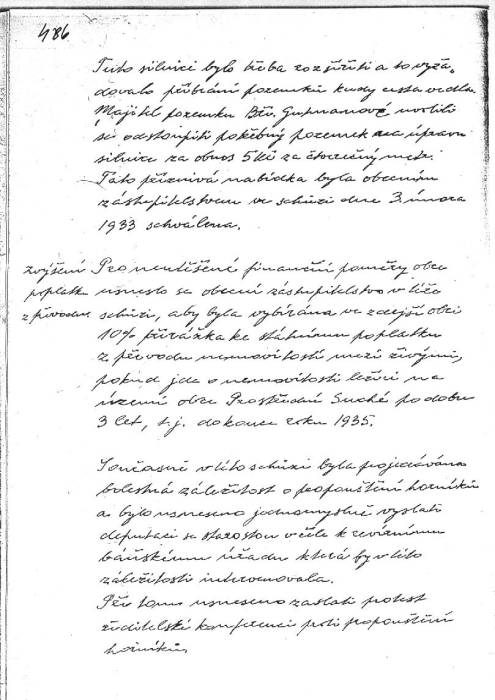 486
Tuto silnici bylo třeba rozšířiti a to vyžá-
dovalo přibrání pozemků kudy cesta vedla.
Majitel pozemku Bří. uvolili
se odstoupiti potřebný pozemek na úpravu
silnice za obnos 5 Kč za čtverečný metr.
Tato příznivá nabídka byla obecním
zastupitelstvem ve schůzi dne 3. února
1933 schválena.
zvýšení Pro neutěšené finanční poměry obce
poplatku usneslo se obecní zastupitelstvo v této
z převodu schůzi, aby byla vybírána ve zdejší obci
10% přirážka ke státnímu poplatku
z převodu nemovitostí mezi živými,
pokud jde o nemovitosti ležící na
území obce Prostřední Suché po dobu
3 let, t.j. do konce roku 1935.
Současně v této schůzi byla projednávána
bolestná záležitost o propouštění horníků
a bylo usneseno jednomyslně vyslati
deputaci se starostou v čele k revírnímu
báňskému úřadu která by v této
záležitosti intervenovala.
Při tom usneseno zaslati protest
ředitelské konferenci proti propouštění
horníků.